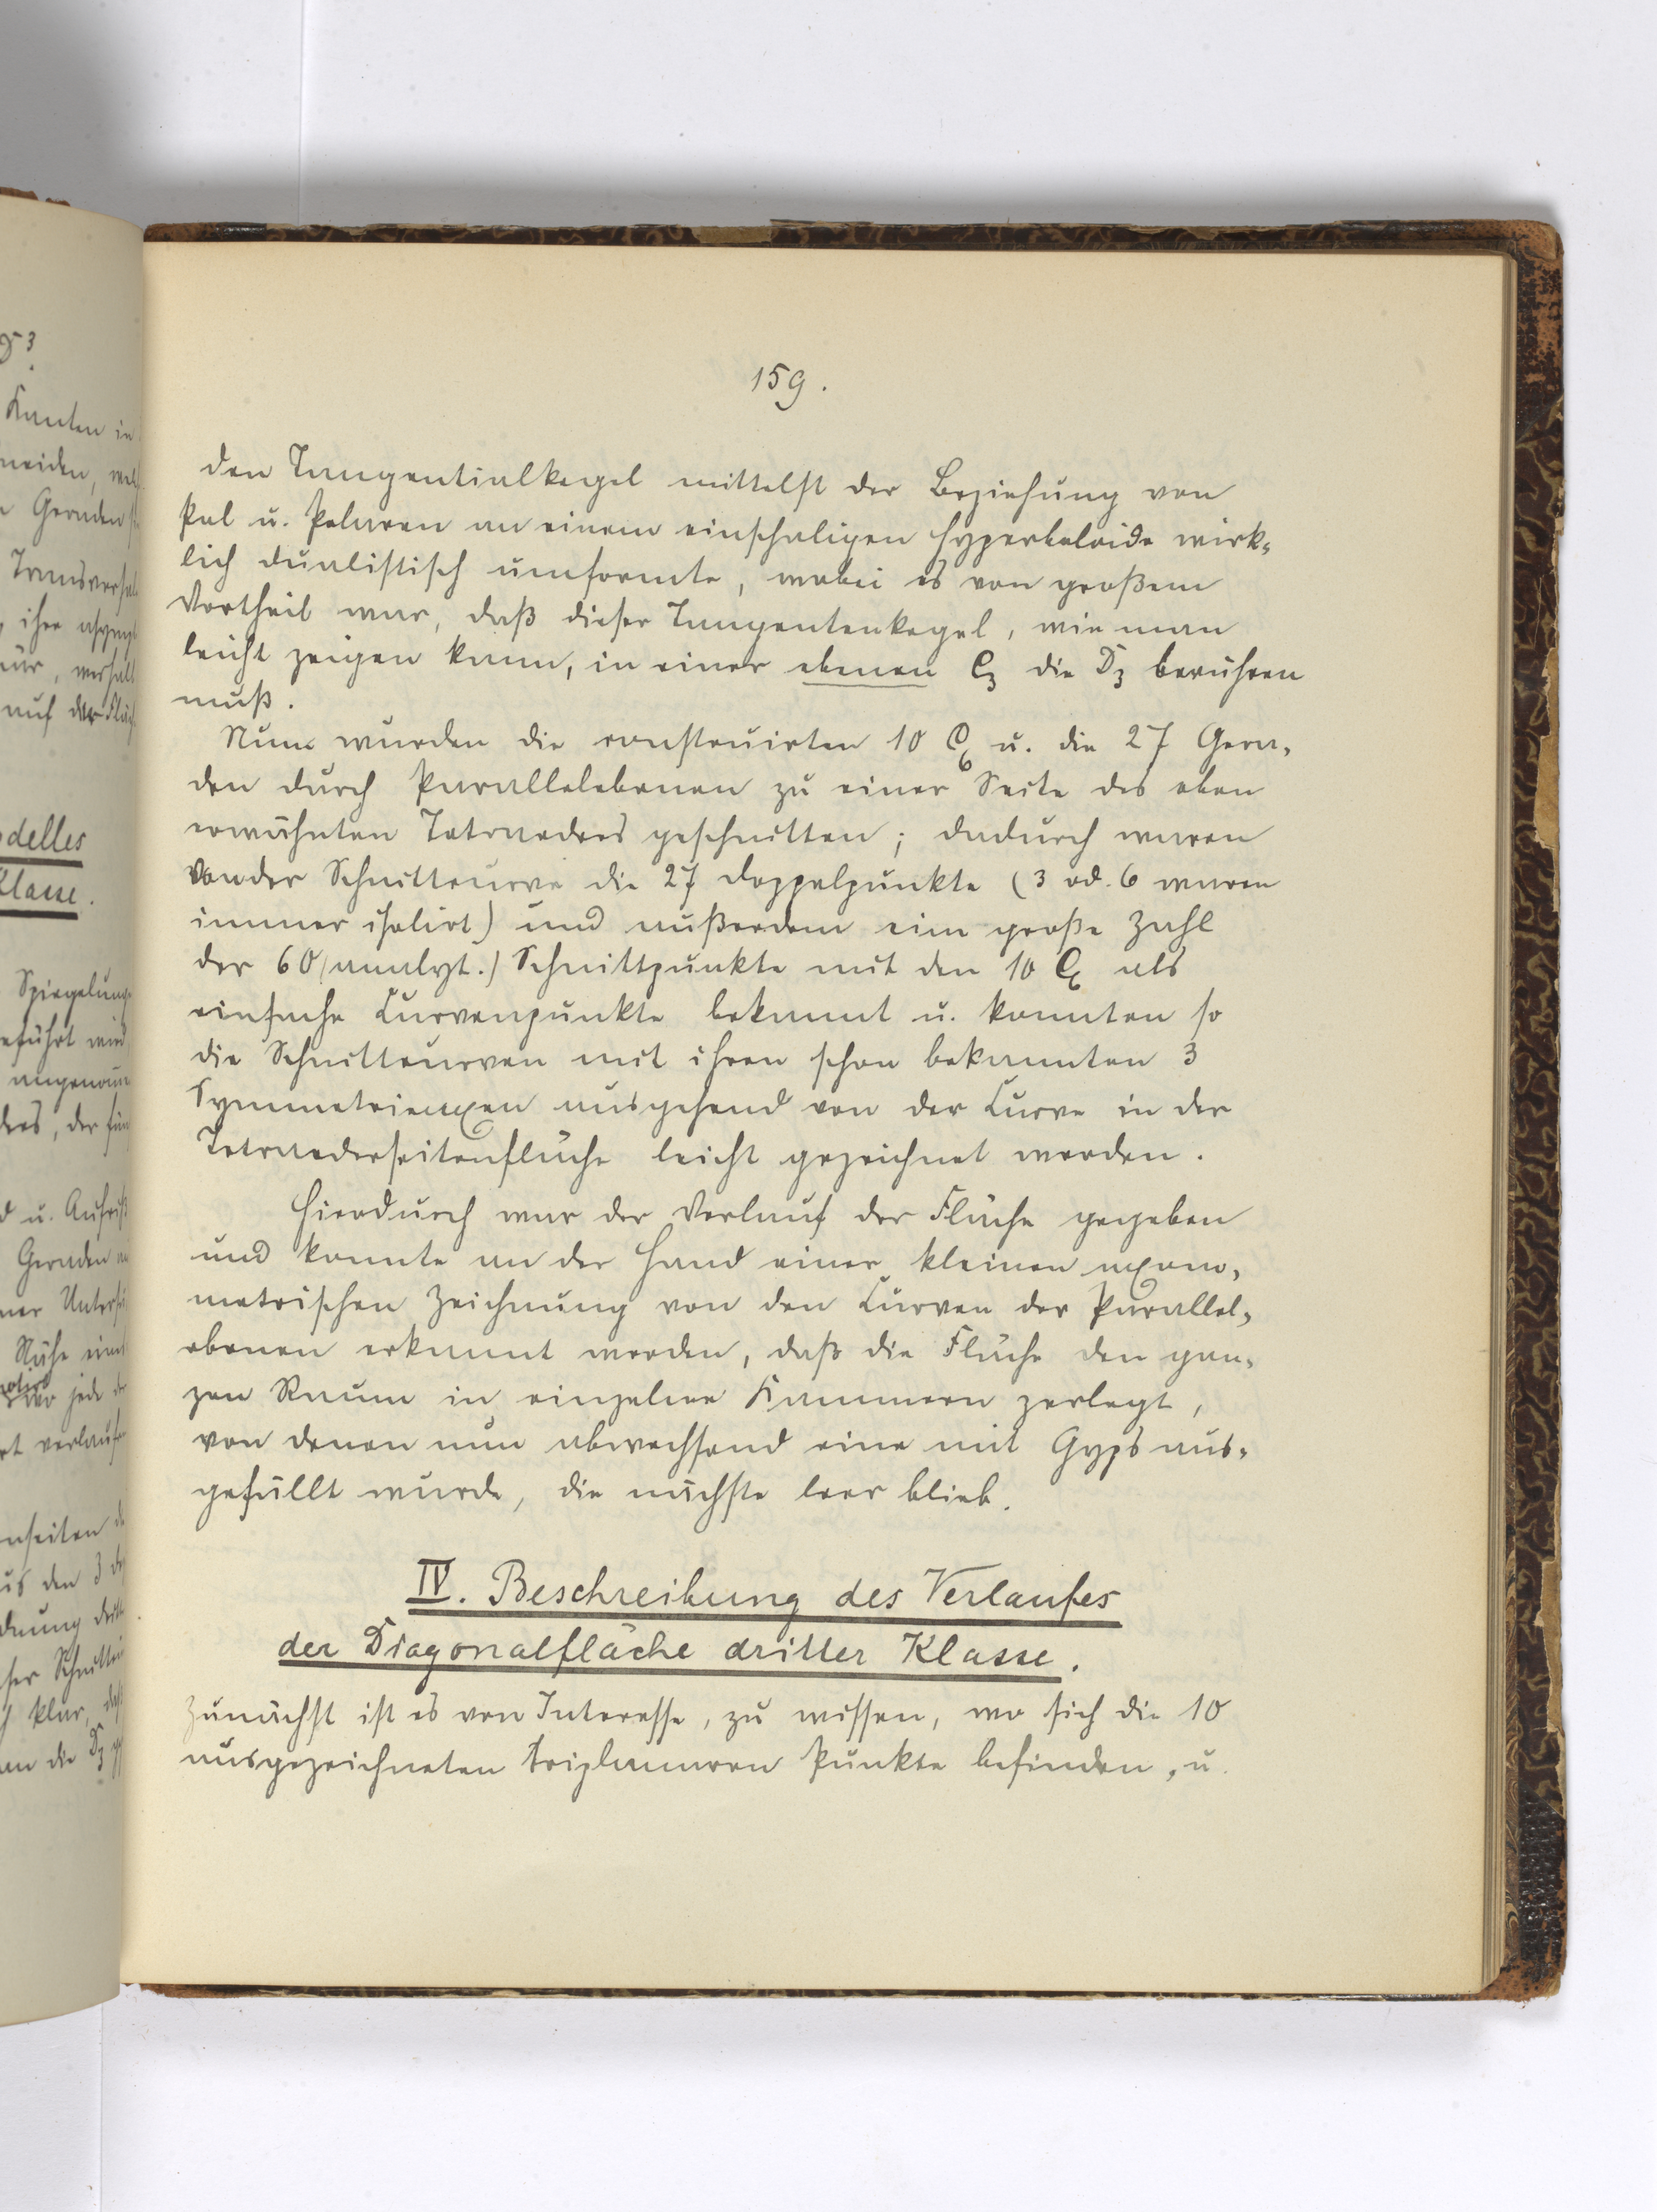 159.
den Tangentialkegel mittelst der Beziehung von
Pol u. Polaren an einem einschaligen Hyperboloide wirk=
lich dualistisch umformte, wobei es von großem
Vortheil war, daß dieser Tangentenkegel, wie man
leicht zeigen kann, in einer ebenen C₃ die D₃ berühren
muß.
Nun wurden die construirten 10 C₆ u. die 27 Gera=
den durch Parallelebenen zu einer Seite des oben
erwähnten Tetraedres geschnitten; dadurch waren
von der Schnittcurve die 27 Doppelpunkte (3 od. 6 waren
immer isolirt) und außerdem eine große Zahl
der 60 (analyt.) Schnittpunkte mit den 10 C₆ als
einfache Curvenpunkte bekannt u. konnten so
die Schnittcurven mit ihren schon bekannten 3
Symmetrieaxen ausgehend von der Curve in der
Tetraederseitenfläche leicht gezeichnet werden.
Hierdurch war der Verlauf der Fläche gegeben
und konnte an der Hand einer kleinen axono=
metrischen Zeichnung von den Curven der Parallel=
ebenen erkannt werden, daß die Fläche den gan=
zen Raum in einzelne Kammern zerlegt,
von denen nun abwechselnd eine mit Gyps aus=
gefüllt wurde, die nächste leer blieb.
IV. Beschreibung des Verlaufes
der Diagonalfläche dritter Klasse.
Zunächst ist es von Interesse, zu wissen, wo sich die 10
ausgezeichneten triplanaren Punkte befinden, u.